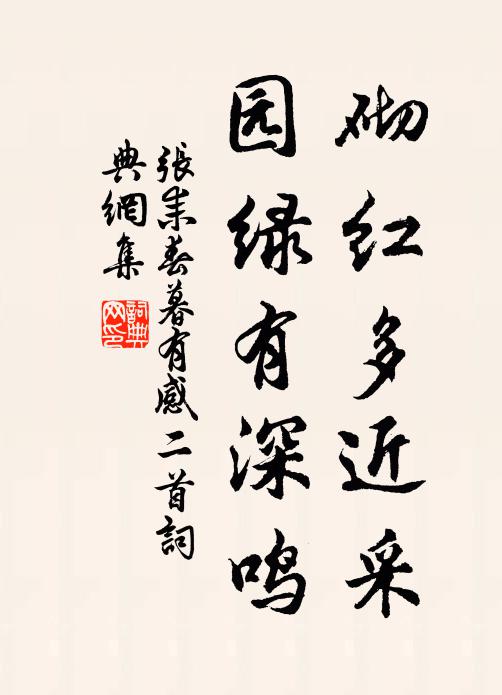 砌红多近采
园绿有深鸣
張耒春暮有感二首詞
典網集
詞典
网印